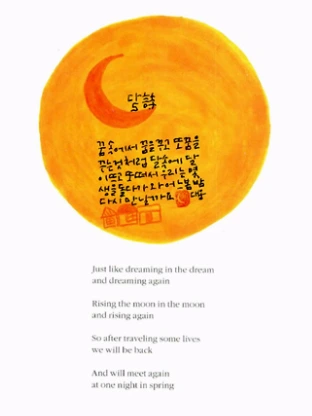 달
꿈속에서 꿈을 꾸고 또 꿈을
꾸는것처럼 달속에 달
이 뜨고 또 떠서 우리는 몇
생을 돌다가 와 어느 봄 밤
다시 만날까요
Just like dreaming in the dream
and dreaming again
Rising the moon in the moon
and rising again
So after traveling some lives
we will be back
And will meet again
at one night in spring